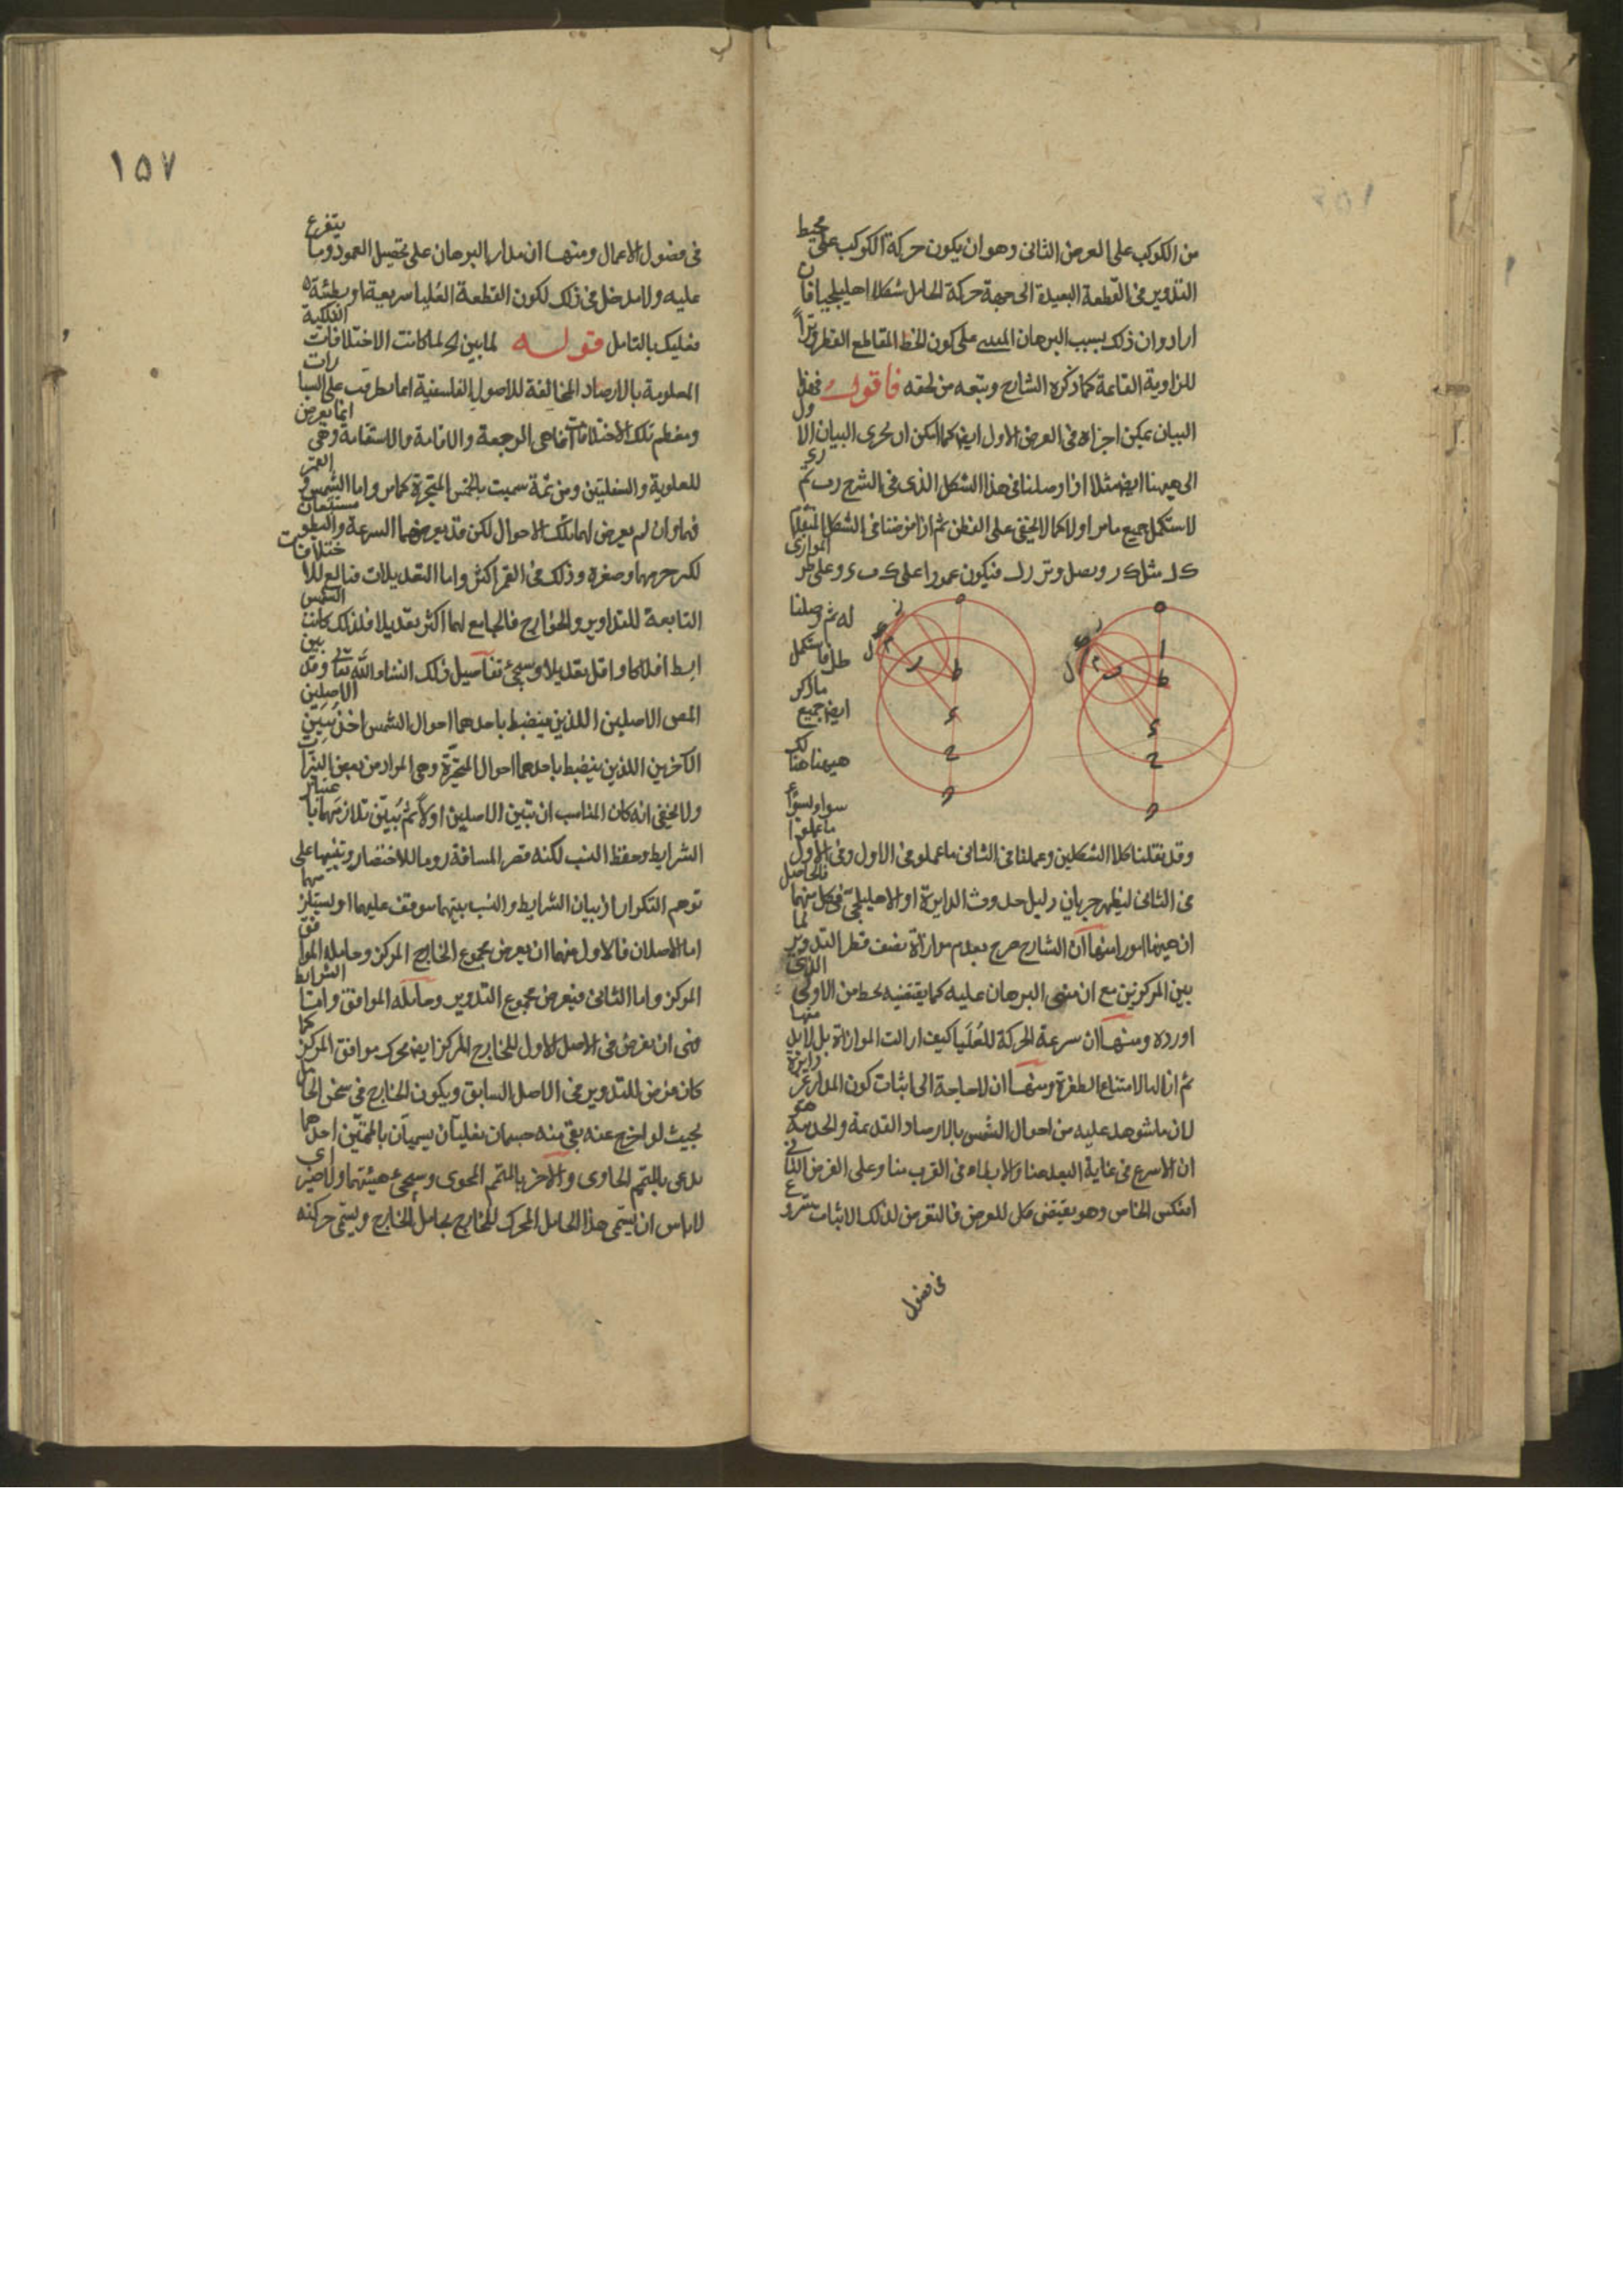 من الكوكب على العرض الثانى وهو ان يكون حركة الكوكب على محيط
التدوير فى القطعة البعيدة الى جهة حركة الحامل شكلا اهليلجيا فان
ارادوا ان ذلك بسبب البرهان على كون الخط المقاطع القطر وترا
للزاوية القائمة كما ذكره الشارح وتبعه من لحقه فاقول
البيان يمكن اجراءه فى العرض الاول ايض كما امكن ان يجرى البيان الاول
الى هيهنا ايض مثلا اذا وصلنا فى هذا الشكل الذى فى الشرح
لاستكمل جميع ما مر اولا كما لا يخفى على الفطن ثم اذا فرضنا فى الشكل
ونصل وتر فيكون عمودا على
له ثم وصلنا
ماذكر
ايض جميع
هيهنا هنا لك
سواء بسواء
وقد نقلنا كلا الشكلين وعملنا فى الثانى ما عملو فى الاول وفى الاول ما عملوا
فى الثانى ليظهر جريان دليل حدوث الدايرة او الاهليلجى فى كل منهما فالحاصل
ان هيهنا امورا منها ان الشارح صرح بعدم موازاة نصف قطر التدوير لما
بين المركزين مع ان مبنى البرهان عليه كما يقتضيه لحظ من الاولى الذى
اورده ومنها ان سرعة الحركة للعليا كيف ارالت الموازاة بل لابد منها
ثم ازالها لامتناع الطفرة ومنها ان لا حاجة الى اثبات كون المدار غير دايرة
لان ما شوهد عليه من احوال الشمس بالارصاد القديمة والحديثة هو
ان الاسرع فى غاية البعد هنا والابطاء فى القرب منا وعلى الفرض الثانى
انعكس الخاص وهو يقتضى فالتعرض لذلك الاثبات شروع
فى فضول
١٥٧
فى فضول الاعمال ومنها ان مدار البرهان على تحصيل العمود وما يتفرع
عليه ولا مدخل فى ذلك لكون القطعة العليا سريعة او بطيئة
فعليك بالتامل قوله لما بين لما كانت الاختلافات الفلكية
المعلومة بالارصاد المخالفة للاصول الفلسفية انما يطرقب على السيارات
ومعظم تلك الاختلافات انما هى الرجعة والاقامة والاستقامة وهى انما يعرض
للعلوية والسفليين ومن ثمة سميت بالخمس المتحيرة كما مر واما الشمس والقمر
فهما وان لم يعرض لهما تلك الاحوال لكن قد يعرضهما السرعة والبطو
لكبر جرمهما وصغره وذلك فى القمر اكثر واما التعديلات فتابع للاختلافات
التابعة للتداوير والخوارج فالجامع لهما اكثر تعديلا فلذلك كانت الشمس
ابسط افلاكا واقل تعديلا وسيجئ تفاصيل ذلك انشاء الله تعالى وقد بين
المص الاصلين اللذين ينضبط باحدهما احوال الشمس اخذ يبين الاصلين
الآخرين اللذين ينضبط باحدهما احوال المتحيرة وهى المراد من بعض النيرات
ولا يخفى انه كان المناسب ان تبين الاصلين اولا ثم يبين تلازمهما باعتبار
الشرايط وحفظ النسب لكنه قصر المسافة روما للاختصار وتنبيها على
توهم التكرار اذ بيان الشرايط والنسب بينهما موقف عليهما او يستلزمهما
اما الاصلان فالاول منهما ان يعرض مجموع الخارج المركز وحامله الموافق
المركز واما الثانى فيعرض مجموع التدوير وحامله الموافق واما الشرايط
فهى ان نفرض فى الاصل الاول للخارج المركز ايض محرك موافق المركز كما
كان فرض للتدوير فى الاصل السابق ويكون الخارج فى ثخن الحامل
بحيث لو اخرج عنه بقى منه جسمان يسميان بالمتممين احدهما
يدعى بالمتمم الحاوى والاخر بالمتمم المحوى وسيجئ هيئتهما
لا باس ان يسمى هذا الحامل المحرك للخارج بحامل الخارج ويسمى حركته